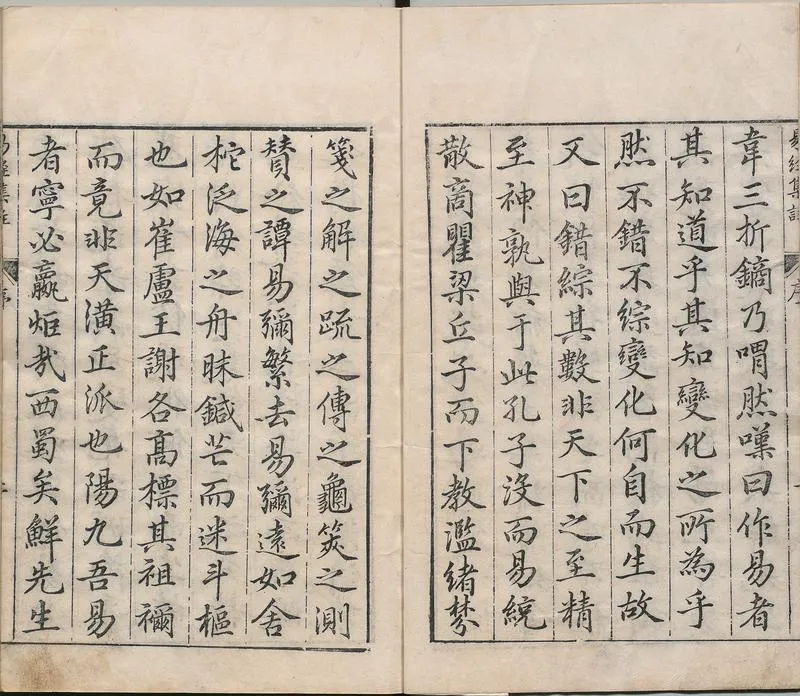 韋三折鏑乃喟然嘆曰作易者
其知道乎其知變化之所為乎
然不錯不綜變化何自而生故
又曰錯綜其數非天下之至精
至神孰與于此孔子沒而易統
散商瞿梁丘子而下教濫緒棼
易經集註
序
箋之解之疏之傳之龜筴之測
賛之譚易彌繁去易彌遠如舍
柁泛海之舟昧鍼芒而迷斗樞
也如崔盧王謝各髙標其祖禰
而竟非天潢正派也陽九吾易
者寧必嬴炬㢤西蜀矣鮮先生
易經集註
序